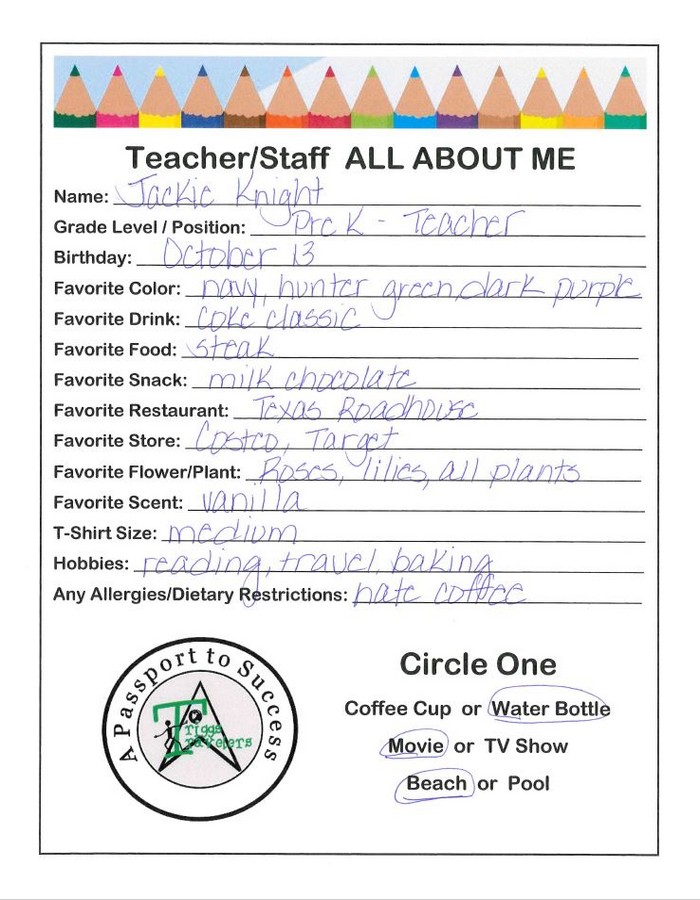 Teacher/Staff ALL ABOUT ME
Name: Jackie Knight
Grade Level / Position: Pre K - Teacher
Birthday: October 13
Favorite Color: navy, hunter green, dark purple
Favorite Drink: Coke classic
Favorite Food: steak
Favorite Snack: milk chocolate
Favorite Restaurant: Texas Roadhouse
Favorite Store: Costco, Target
Favorite Flower/Plant: Roses, lilies, all plants
Favorite Scent: vanilla
T-Shirt Size: medium
Hobbies: reading, travel, baking
Any Allergies/Dietary Restrictions: hate coffee
A Passport to Success
Triggs
Travelers
Circle One
Coffee Cup or Water Bottle
Movie or TV Show
Beach or Pool